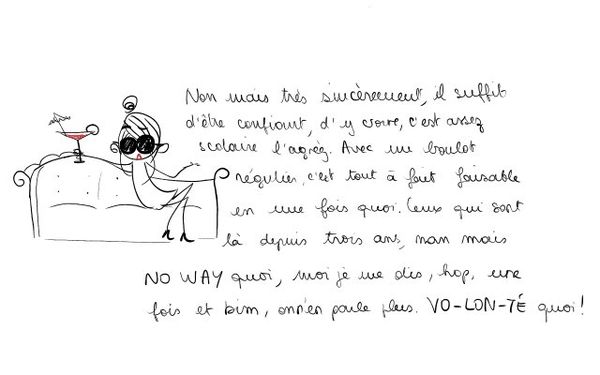 Non mais très sincèrement, il suffit
d'être confiant, d'y croire, c'est assez
scolaire l'agrég. Avec un boulot
régulier, c'est tout à fait faisable
en une fois quoi. Ceux qui sont
là depuis trois ans, nan mais
NO WAY quoi, moi je me dis, hop, une
fois et bim, on n'en parle plus. VO-LON-TÉ quoi!